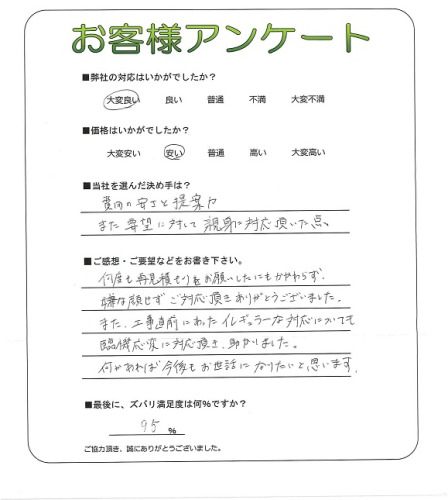 お客様アンケート
■弊社の対応はいかがでしたか？
大変良い 良い 普通 不満 大変不満
■価格はいかがでしたか？
大変安い 安い 普通 高い 大変高い
■当社を選んだ決め手は？
費用の安さと提案力
また要望に対して親身に対応頂いた点。
■ご感想・ご要望などをお書き下さい。
何度も再見積もりをお願いしたにもかかわらず、
嫌な顔せずご対応頂きありがとうございました。
また、工事直前にあったイレギュラーな対応についても
臨機応変に対応頂き、助かりました。
何かあれば今後もお世話になりたいと思います。
■最後に、ズバリ満足度は何％ですか？
95 ％
ご協力頂き、誠にありがとうございました。